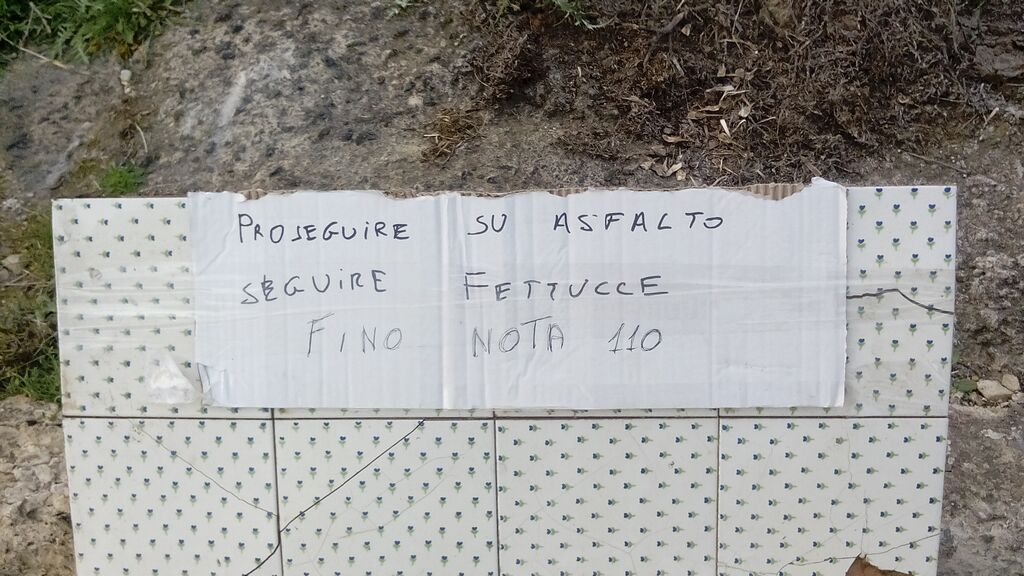 PROSEGUIRE SU ASFALTO
SEGUIRE FETTUCCE
FINO NOTA 110